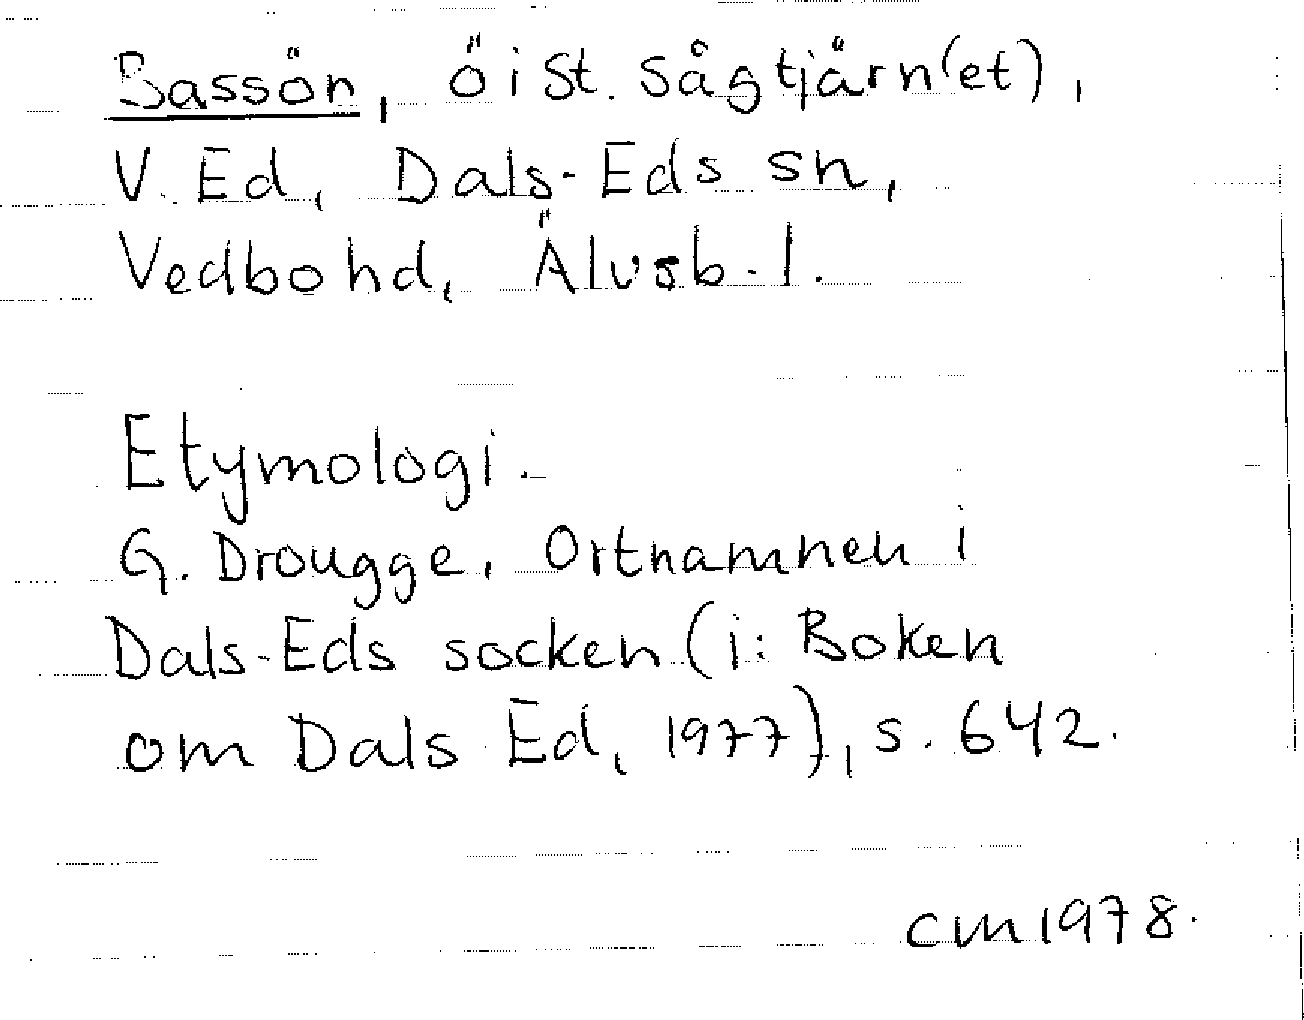 Bassön, ö i St. Sågtjärn(et),
V. Ed, Dals-Eds sn,
Vedbo hd, Älvsb. l.
Etymologi.
G. Drougge, Ortnamnen i
Dals-Eds socken (i: Boken
om Dals Ed, 1977), s. 642.
CM 1978.